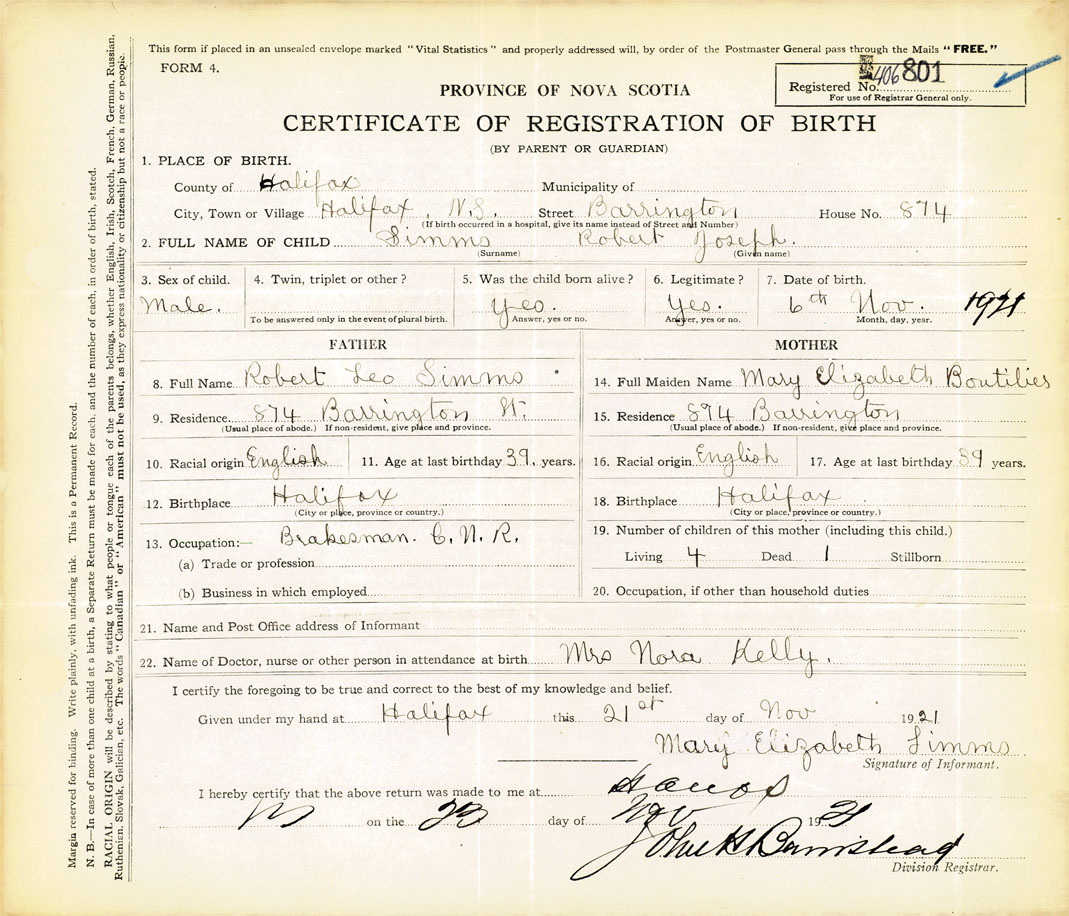 This form if placed in an unsealed envelope marked "Vital Statistics" and properly addressed will, by order of the Postmaster General pass through the Mails "FREE."
FORM 4.
406801
Registered No.
For use of Registrar General only.
PROVINCE OF NOVA SCOTIA
CERTIFICATE OF REGISTRATION OF BIRTH
(BY PARENT OR GUARDIAN)
1. PLACE OF BIRTH.
County of Halifax Municipality of
City, Town or Village Halifax, N.S. Street Barrington House No. 874
(If birth occurred in a hospital, give its name instead of Street and Number)
2. FULL NAME OF CHILD Simms Robert Joseph.
(Surname) (Given name)
3. Sex of child. 4. Twin, triplet or other? 5. Was the child born alive? 6. Legitimate? 7. Date of birth.
Male. yes. Yes. 6th Nov. 1921
To be answered only in the event of plural birth. Answer, yes or no. Answer, yes or no. Month, day, year.
FATHER
8. Full Name Robert Leo Simms
9. Residence 874 Barrington St.
(Usual place of abode.) If non-resident, give place and province.
10. Racial origin English 11. Age at last birthday 39, years.
12. Birthplace Halifax
(City or place, province or country.)
13. Occupation:— Brakesman. C.N.R.
(a) Trade or profession
(b) Business in which employed
MOTHER
14. Full Maiden Name Mary Elizabeth Boutilier
15. Residence 874 Barrington
(Usual place of abode.) If non-resident, give place and province.
16. Racial origin English 17. Age at last birthday 39 years.
18. Birthplace Halifax
(City or place, province or country.)
19. Number of children of this mother (including this child.)
Living 4 Dead 1 Stillborn
20. Occupation, if other than household duties
21. Name and Post Office address of Informant
22. Name of Doctor, nurse or other person in attendance at birth Mrs Nora Kelly.
I certify the foregoing to be true and correct to the best of my knowledge and belief.
Given under my hand at Halifax this 21st day of Nov 1921
Mary Elizabeth Simms
Signature of Informant.
I hereby certify that the above return was made to me at
on the 23 day of Nov 1921
John H Barnstead
Division Registrar.
Margin reserved for binding. Write plainly, with unfading ink. This is a Permanent Record.
N. B.—In case of more than one child at a birth, a Separate Return must be made for each, and the number of each, in order of birth, stated.
RACIAL ORIGIN will be described by stating to what people or tongue each of the parents belongs, whether English, Irish, Scotch, French, German, Russian,
Ruthenian, Slovak, Galician, etc. The words "Canadian" or "American" must not be used, as they express nationality or citizenship but not a race or people.